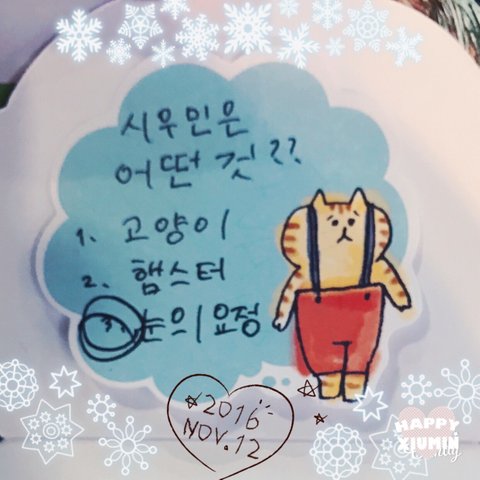 시우민은
어떤 것??
1. 고양이
2. 햄스터
3. 눈의 요정
2016
NOV.12
HAPPY
XIUMIN